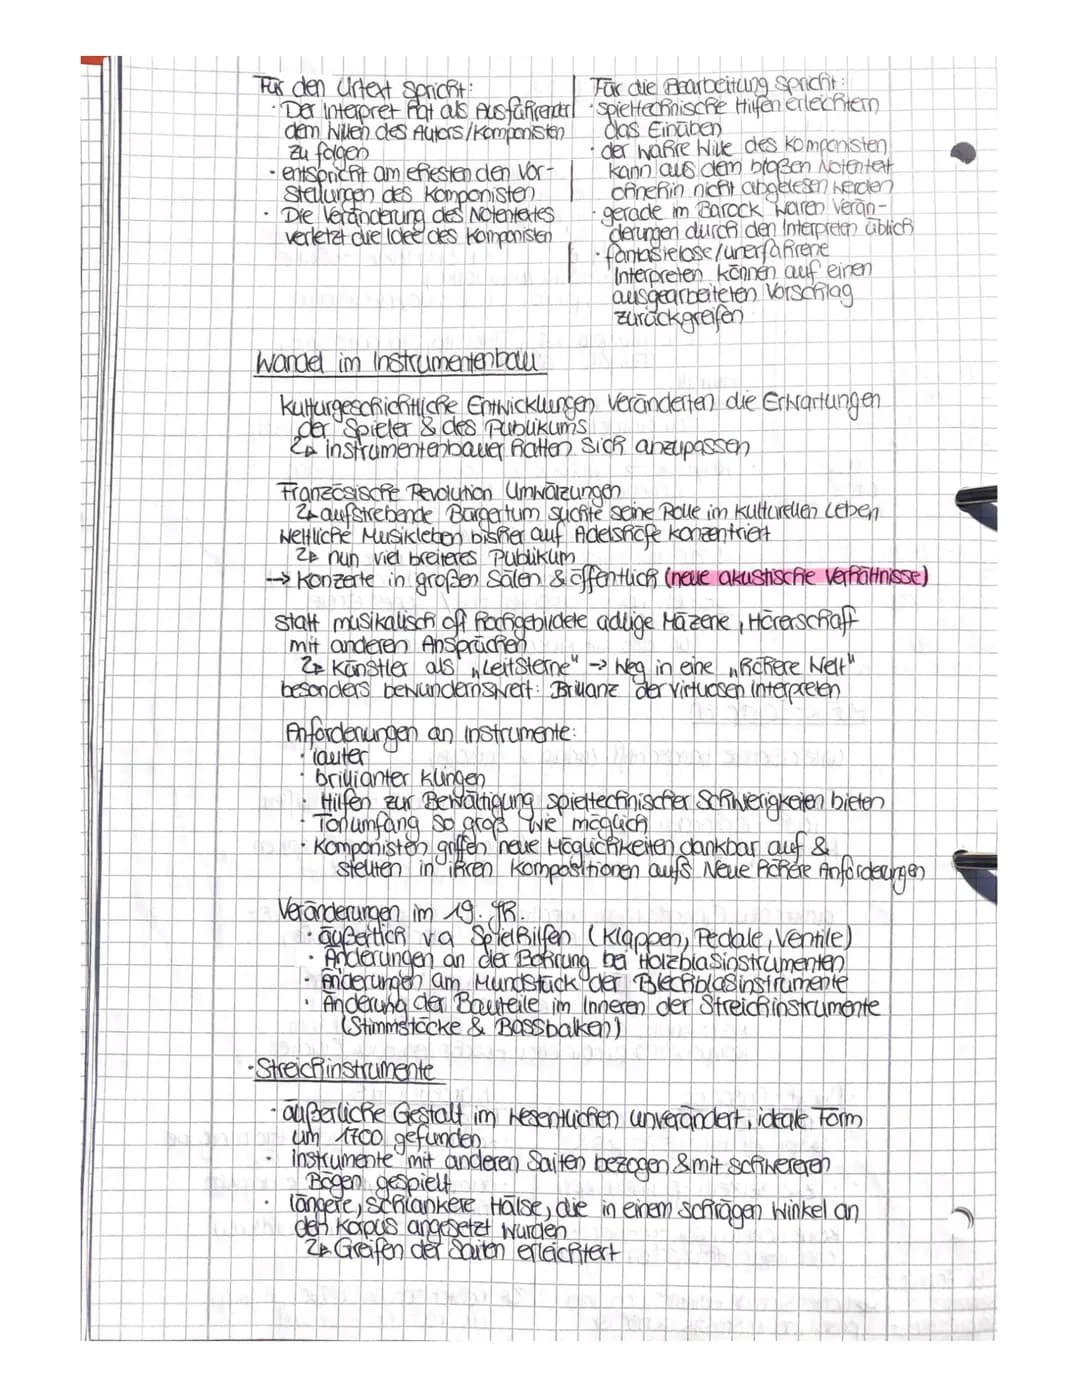 Für den Urtext spricht:
· Der Interpret hat als Ausführender
dem Willen des Autors/Komponisten
zu folgen
· entspricht am ehesten den Vor-
stellungen des Komponisten
· Die Veränderung des Notentextes
verletzt die Idee des Komponisten
Für die Bearbeitung spricht:
· spieltechnische Hilfen erleichtern
das Einüben
· der wahre Wille des Komponisten
kann aus dem bloßen Notentext
ohnehin nicht abgelesen werden
· gerade im Barock waren Verän-
derungen durch den Interpreten üblich
· fantasielose/unerfahrene
Interpreten können auf einen
ausgearbeiteten Vorschlag
zurückgreifen
Wandel im Instrumentenbau
Kulturgeschichtliche Entwicklungen veränderten die Erwartungen
der Spieler & des Publikums
↳ Instrumentenbauer hatten sich anzupassen
Französische Revolution Umwälzungen
↳ aufstrebende Bürgertum suchte seine Rolle im kulturellen Leben
Weltliche Musikleben bisher auf Adelshöfe konzentriert
↳ nun viel breiteres Publikum
→ Konzerte in großen Sälen & öffentlich (neue akustische Verhältnisse)
statt musikalisch oft hochgebildete adlige Mäzene, Hörerschaft
mit anderen Ansprüchen
↳ Künstler als „Leitsterne" → Weg in eine „höhere Welt"
besonders bewundernswert: Brillanz der virtuosen Interpreten
Anforderungen an Instrumente:
· lauter
· brillianter klingen
· Hilfen zur Bewältigung spieltechnischer Schwierigkeien bieten
· Tonumfang so groß wie möglich
· Komponisten griffen neue Möglichkeiten dankbar auf &
stellten in ihren Kompositionen aufs Neue höhere Anforderungen
Veränderungen im 19. Jh.
· äußerlich va Spielhilfen (Klappen, Pedale, Ventile)
· Änderungen an der Bohrung bei Holzblasinstrumenten
· Änderungen am Mundstück der Blechblasinstrumente
· Änderung der Bauteile im Inneren der Streichinstrumente
(Stimmstöcke & Bassbalken)
· Streichinstrumente
· äußerliche Gestalt im wesentlichen unverändert, ideale Form
um 1700 gefunden
· Instrumente mit anderen Saiten bezogen & mit schwereren
Bögen gespielt
· längere, schlankere Hälse, die in einem schrägen Winkel an
den Korpus angesetzt wurden
↳ Greifen der Saiten erleichtert